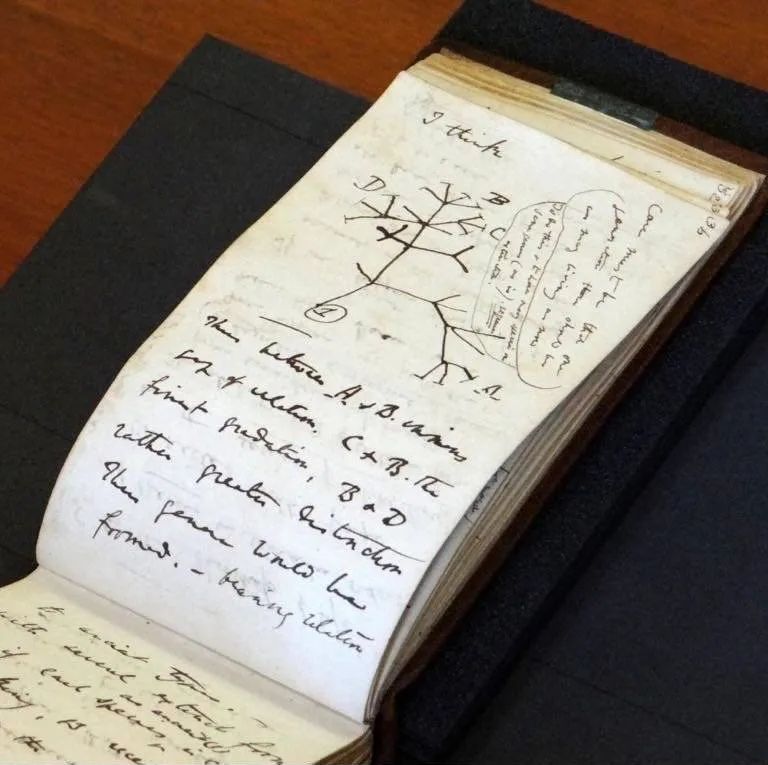 I think
D
B
C
1
A
36
Case must be that one
generation then should be
as many living as now
To do this & to have many species in
same genus (as is). requires
extinction
Thus between A. & B. immens
gap of relation. C & B. The
finest gradation, B & D
rather greater distinction
Thus genera would be
formed. — bearing relation
to ancient types. —
with several extinct forms
if each species an ancient
king, 13 rece